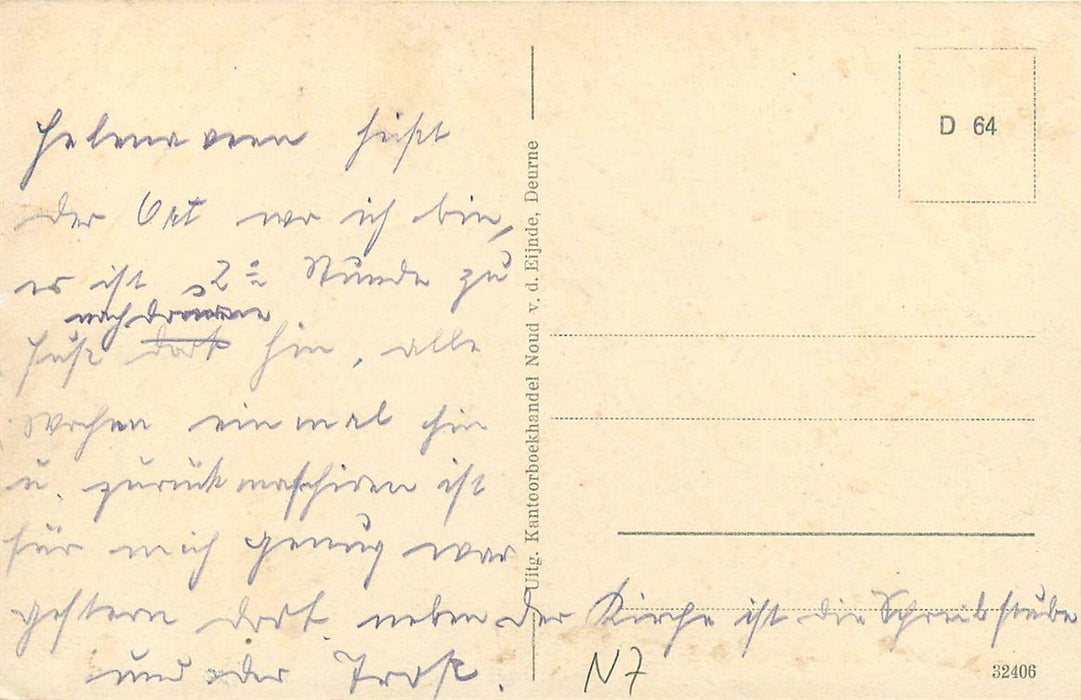 Helenaveen heißt
der Ort wo ich bin,
es ist 2 Stunde zu
nach Deurne
Fuß dort hin, alle
Wochen einmal hin
u. zurück maschiren ist
für mich genug war
gestern dort. neben der Kirche ist die Schreibstube
und der Troß.
N7
Uitg. Kantoorboekhandel Noud v. d. Eijnde, Deurne
D 64
32406